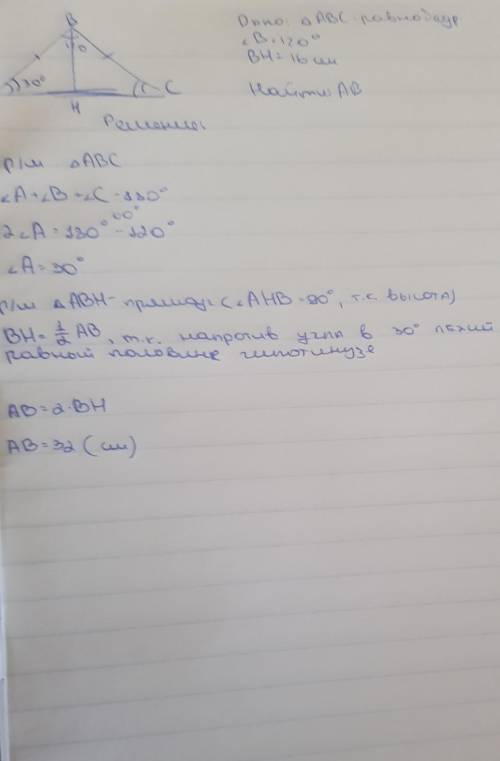 B
Дано: △ABC-равнобедр
∠B=120°
BH=16 см
30°
C
H
Найти: AB
Решение:
Р/м △ABC
∠A+∠B+∠C=180°
60°
2∠A=180°-120°
∠A=30°
Р/м △ABH- прямоуг (∠AHB=90°, т.к. высота)
BH=½AB, т.к. напротив угла в 30° лежит
равный половине гипотинузе
AB=2·BH
AB=32 (см)